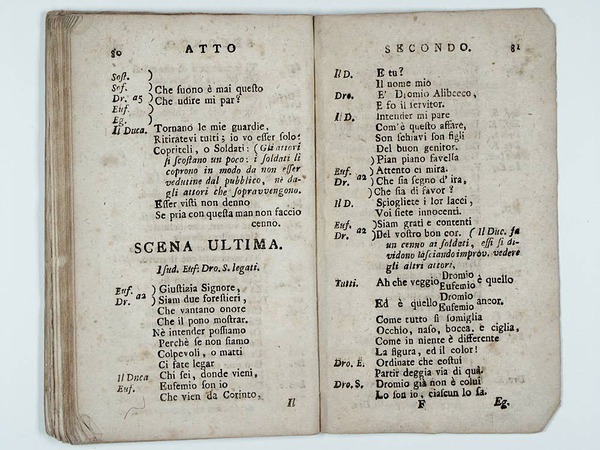 80 ATTO
Soſt. )
Sof. ) Che ſuono è mai queſto
Dr. a5 ) Che udire mi par?
Euf. )
Eg. )
Il Duca. Tornano le mie guardie,
Ritiratevi tutti; io vo eſſer ſolo:
Copriteli, o Soldati: (Gli attori
ſi ſcoſtano un poco: i ſoldati li
coprono in modo da non eſſer
vedutine dal pubblico, nè da-
gli attori che ſopravvengono.
Eſſer viſti non denno
Se pria con queſta man non faccio
cenno.
SCENA ULTIMA.
I ſud. Euf: Dro. S. legati.
Euf. ) Giuſtizia Signore,
Dr. a2 ) Siam due foreſtieri,
Che vantano onore
Che il pono moſtrar.
Nè intender poſſiamo
Perchè ſe non ſiamo
Colpevoli, o matti
Ci fate legar
Il Duca Chi ſei, donde vieni,
Euf. Eufemio ſon io
Che vien da Corinto,
Il
SECONDO. 81
Il D. E tu?
Il nome mio
Dro. E' Dromio Alibeeco,
E fo il ſervitor.
Il D. Intender mi pare
Com'è queſto affare,
Son ſchiavi ſon figli
Del buon genitor.
) Pian piano favella
Euf. ) Attento ci mira.
Dr. a2 ) Che ſia ſegno d'ira,
) Che ſia di favor?
Il D. Sciogliete i lor lacci,
Voi ſiete innocenti.
Euf. ) Siam grati e contenti
Dr. a2 ) Del voſtro bon cor. (Il Duc. fa
un cenno ai ſoldati, eſſi ſi di-
vidono laſciando improv. vedere
gli altri attori,
Tutti. Ah che veggio Dromio Eufemio è quello
Ed è quello Dromio Eufemio ancor.
Come tutto ſi ſomiglia
Occhio, naſo, bocca. e ciglia,
Come in niente è differente
La figura, ed il color!
Dro. E. Ordinate che coſtui
Partir deggia via di quà.
Dro. S. Dromio già non è colui
Lo ſon io, ciaſcun lo ſa.
F Eg.